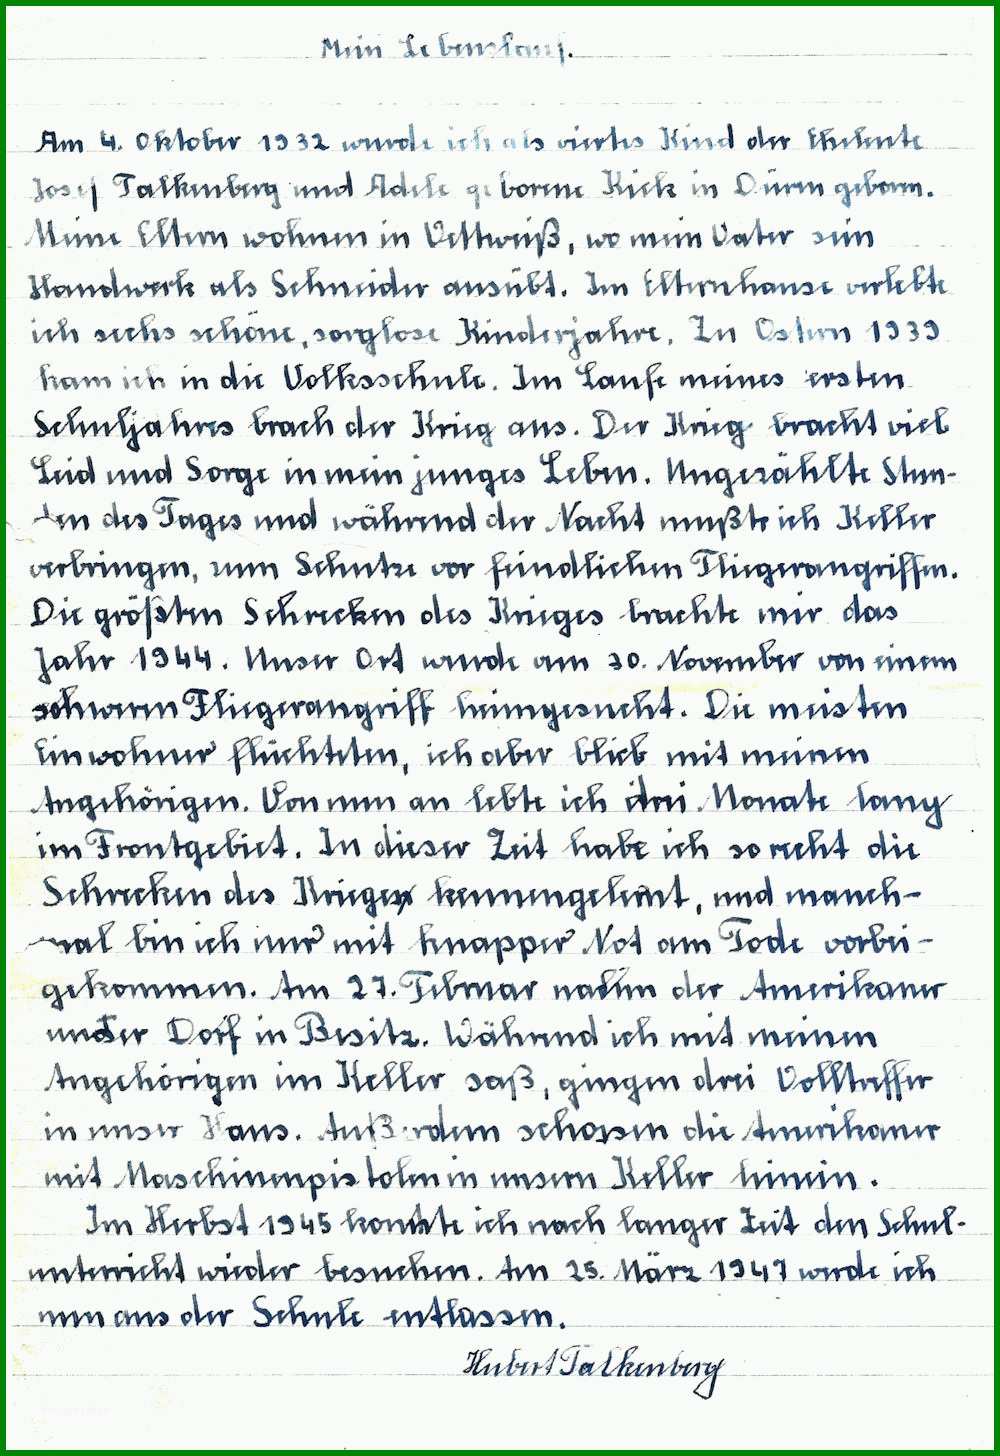 Mein Lebenslauf.
Am 4. Oktober 1932 wurde ich als viertes Kind der Eheleute
Josef Falkenberg und Adele geborene Kick in Düren geboren.
Meine Eltern wohnen in Vettweiß, wo mein Vater sein
Handwerk als Schneider ausübt. Im Elternhause verlebte
ich sechs schöne, sorglose Kinderjahre. Zu Ostern 1939
kam ich in die Volksschule. Im Laufe meines ersten
Schuljahres brach der Krieg aus. Der Krieg bracht viel
Leid und Sorge in mein junges Leben. Ungezählte Stun-
den des Tages und während der Nacht mußte ich Keller
verbringen, zum Schutze vor feindlichen Fliegerangriffen.
Die größten Schrecken des Krieges brachte mir das
Jahr 1944. Unser Ort wurde am 30. November von einem
schweren Fliegerangriff heimgesucht. Die meisten
Einwohner flüchteten, ich aber blieb mit meinen
Angehörigen. Von nun an lebte ich drei Monate lang
im Frontgebiet. In dieser Zeit habe ich so recht die
Schrecken des Krieges kennengelernt, und manch-
mal bin ich nur mit knapper Not am Tode vorbei-
gekommen. Am 27. Februar nahm der Amerikaner
unser Dorf in Besitz. Während ich mit meinen
Angehörigen im Keller saß, gingen drei Volltreffer
in unser Haus. Außerdem schossen die Amerikaner
mit Maschinenpistolen in unsern Keller hinein.
Im Herbst 1945 konnte ich nach langer Zeit den Schul-
unterricht wieder besuchen. Am 25. März 1947 werde ich
nun aus der Schule entlassen.
Hubert Falkenberg